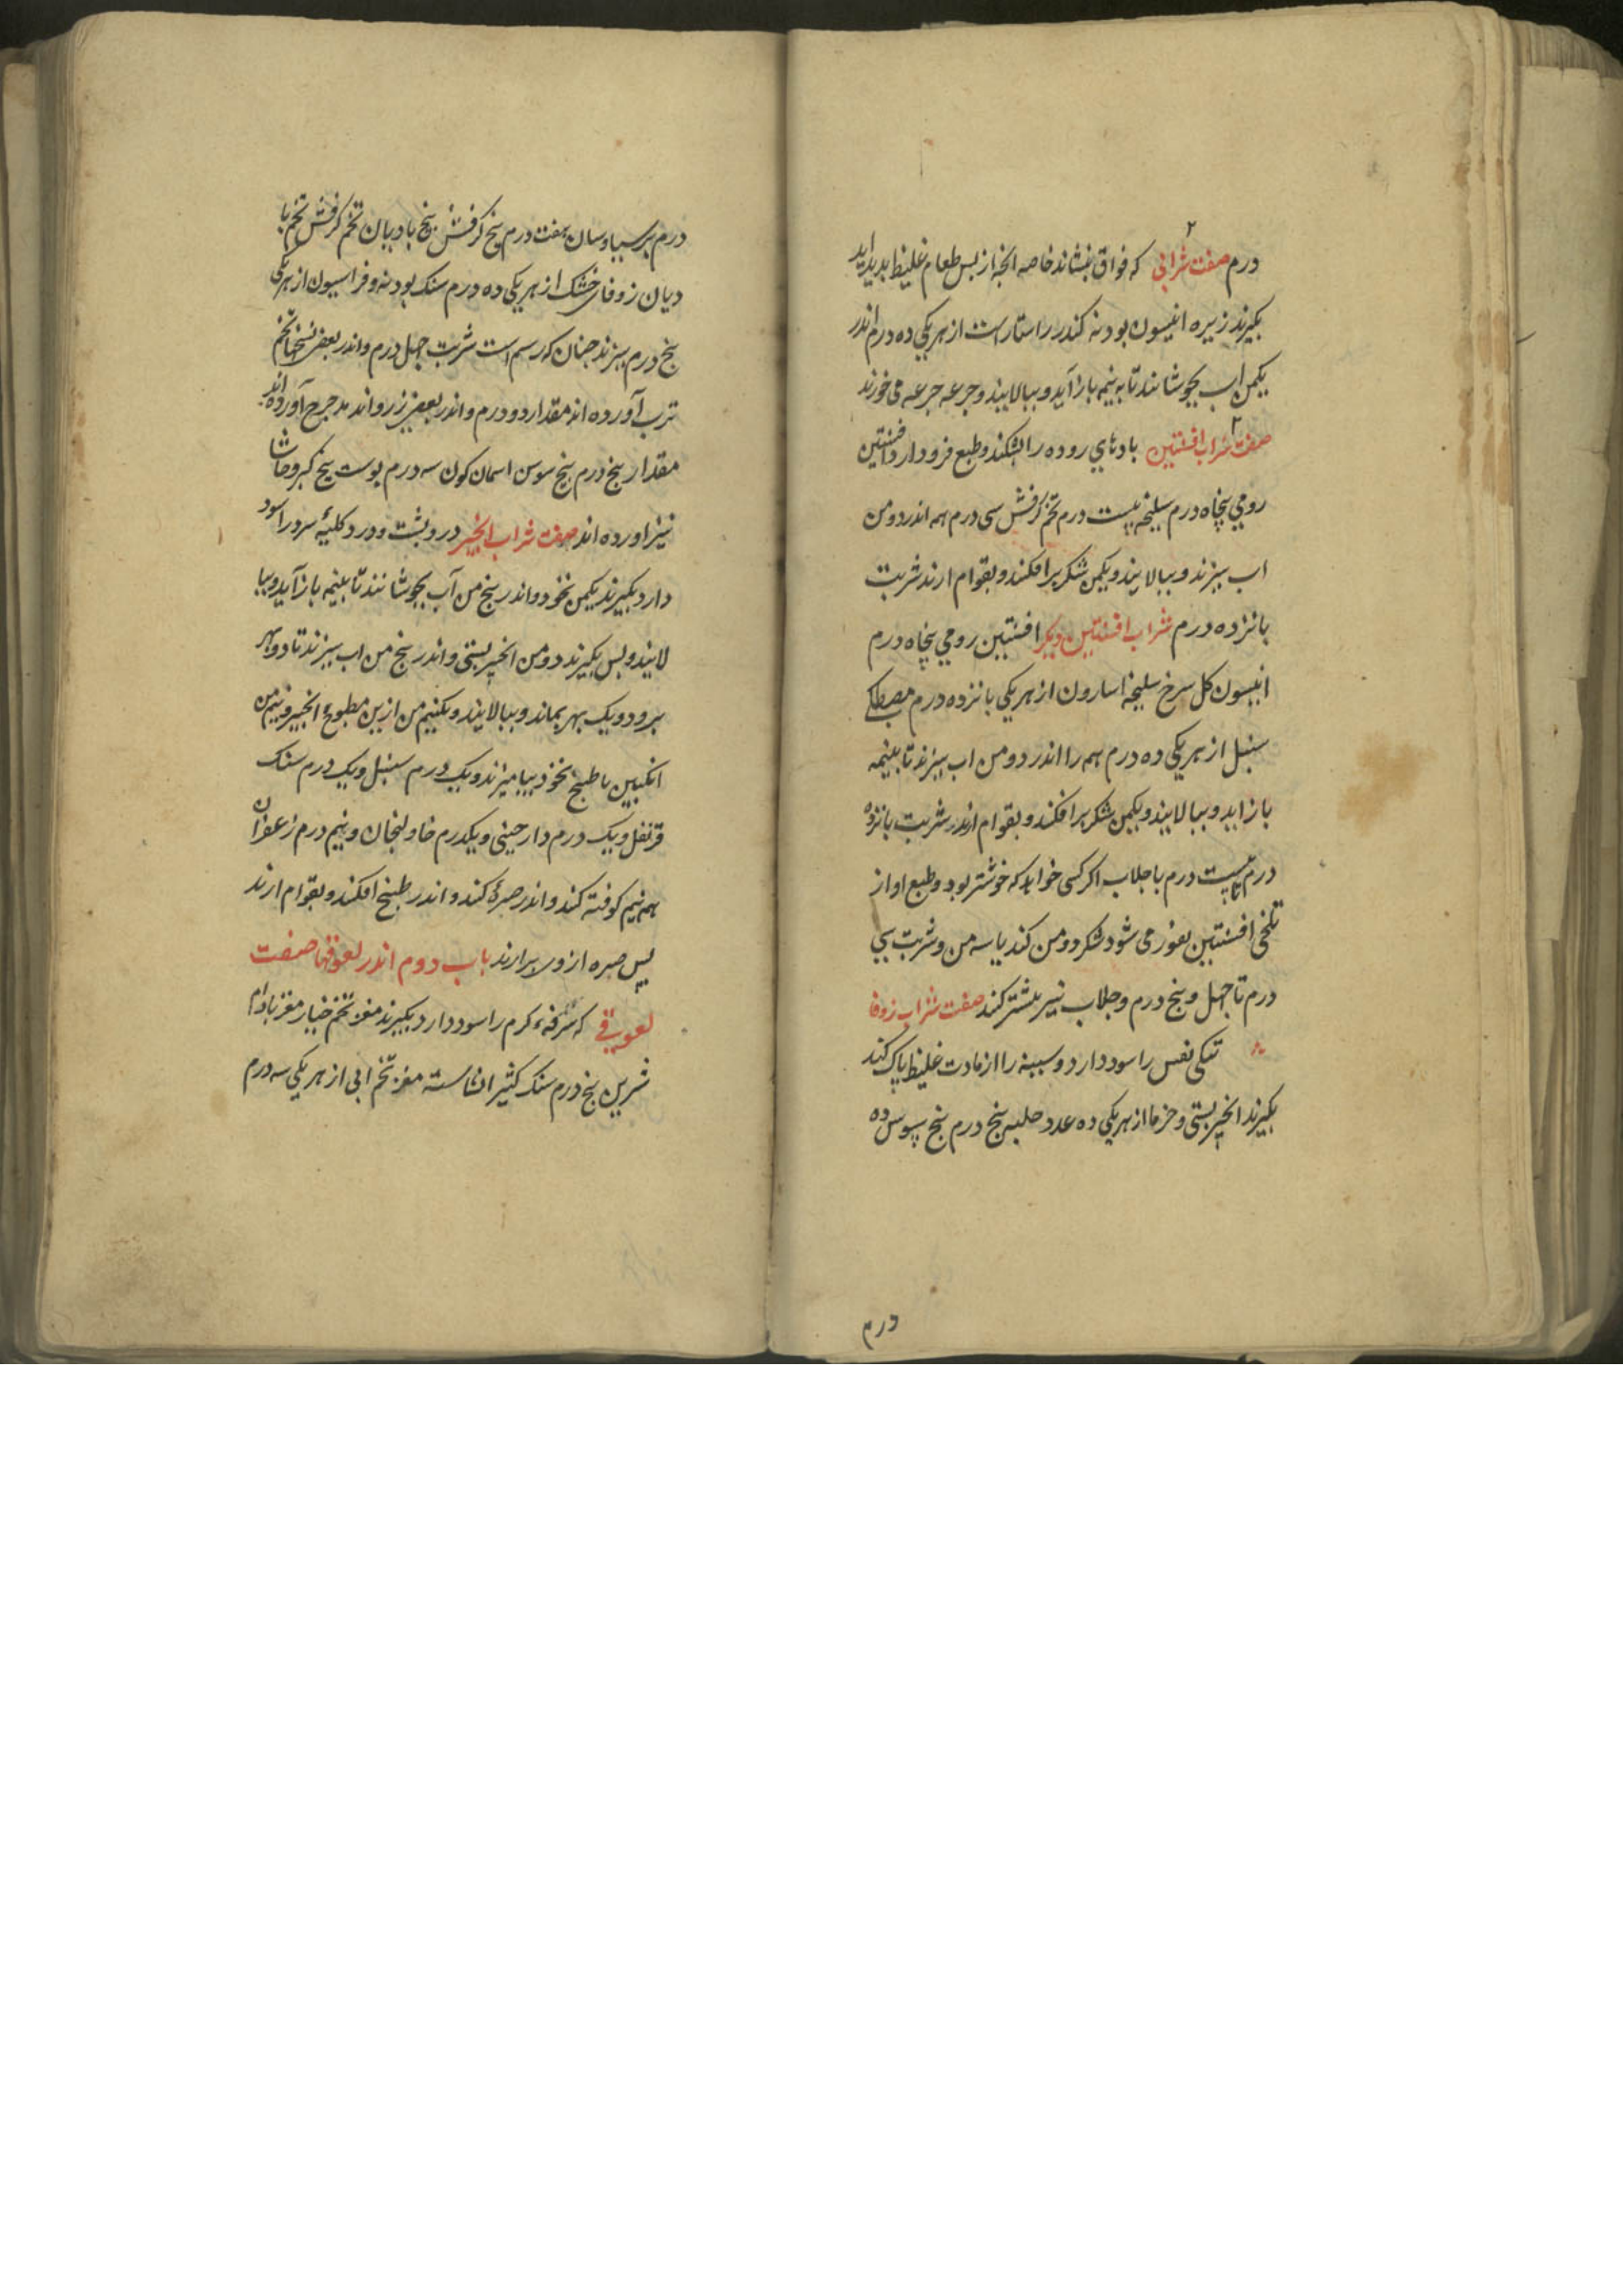 درم صفت شرابی که فواق بنشاند خاصه انچه از بس طعام غلیظ بدید اید
بکیرند زیره انیسون بودنه کندر راستاراست از هر یکی ده درم اندر
یکمن اب بجوشانند تا به نیمه باز آید و ببالایند و جرعه جرعه می خورند
صفت شراب افسنتین بادهای روده را بشکند و طبع فرود ارد افسنتین
رومی پنجاه درم سلیخه بیست درم تخم کرفش سی درم همه اندر دو من
اب ببزند و ببالایند و یکمن شکر برافکنند و بقوام ارند شربت
بانزده درم شراب افسنتین دیکر افسنتین رومی پنجاه درم
انیسون کل سرخ سلیخه اسارون از هر یکی بانزده درم مصطکی
سنبل از هر یکی ده درم همه را اندر دو من اب ببزند تا بنیمه
باز اید و ببالایند و یکمن شکر برافکنند و بقوام ارند شربت بانزده
درم تا بیست درم با جلاب اکر کسی خواهد که خوشتر بود و طبع او از
تلخی افسنتین نفور می شود شکر دو من کند یا سه من و شربت سی
درم تا جهل و بنج درم و جلاب نیر بیشتر کند صفت شراب زوفا
تنکی نفس را سود دارد و سینه را از مادت غلیظ باک کند
بکیرند انجیر بستی و خرما از هر یکی ده عدد حلبه بنج درم بنج سوس ده
درم
درم برسیاوسان هفت درم بیخ کرفش بیخ بادیان تخم کرفش تخم با
دیان زوفای خشک از هر یکی ده درم سنک بودنه و فراسیون از هر یکی
بنج درم ببزند جنان که رسم است شربت جهل درم و اندر بعضی نسخها تخم
ترب آورده اند مقدار دو درم و اندر بعضی زرواند مدحرج آورده اند
مقدار بنج درم بیخ سوس اسمان کون سه درم بوست بیخ کبر و حاشا
نیز اورده اند صفت شراب انجیر درد بشت و درد کلیهٔ سرد را سود
دارد بکیرند یکمن نخود و اندر بنج من آب بجوشانند تا بنیمه باز آید و ببا
لایند و بس بکیرند دو من انجیر بستی و اندر بنج من اب ببزند تا دو بهر
برود و یک بهر بماند و ببالایند و یکنیم من ازین مطبوخ انجیر و نیم من
انکبین با طبیخ نخود بیامیزند و یک درم سنبل و یک درم سنک
قرنفل و یک درم دارجینی و یکدرم خاولنجان و نیم درم زعفران
همه نیم کوفته کنند و اندر صرهٔ کنند و اندر طبیخ افکنند و بقوام ارند
پس صره از وی برارند باب دوم اندر لعوقها صفت
لعوقی که سرفهٔ کرم را سود دارد بکیرند مغز تخم خیار مغز بادام
شرین بنج درم سنک کثیرا نشاسته مغز تخم ابی از هر یکی سه درم